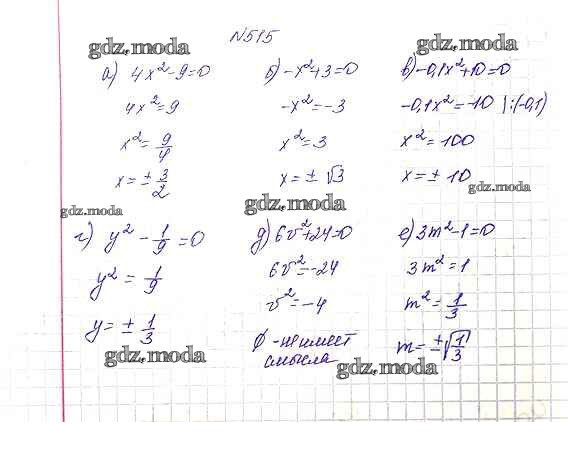 №515
gdz.moda
gdz.moda
а) 4x²-9=0
4x²=9
x²=9/4
x=±3/2
б) -x²+3=0
-x²=-3
x²=3
x=±√3
в) -0,1x²+10=0
-0,1x²=-10 |:(-0,1)
x²=100
x=±10
gdz.moda
gdz.moda
gdz.moda
г) y²-1/9=0
y²=1/9
y=±1/3
gdz.moda
д) 6v²+24=0
6v²=-24
v²=-4
∅ - не имеет
смысла
е) 3m²-1=0
3m²=1
m²=1/3
m=±√1/3
gdz.moda